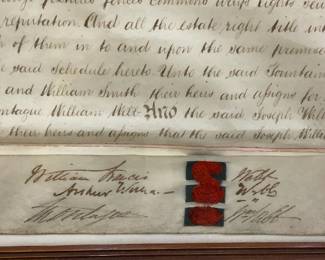 fences commons ways lights
reputation. And all the estate right title int
of them in to and upon the same premises
said schedule hereto. Unto the said Fountain
and William Smith their heirs and assigns for
ntague William Webb And the said Joseph Web
their heirs and assigns that the said Joseph Willi
William Francis Webb
Arthur Webb
Montague Wm Webb